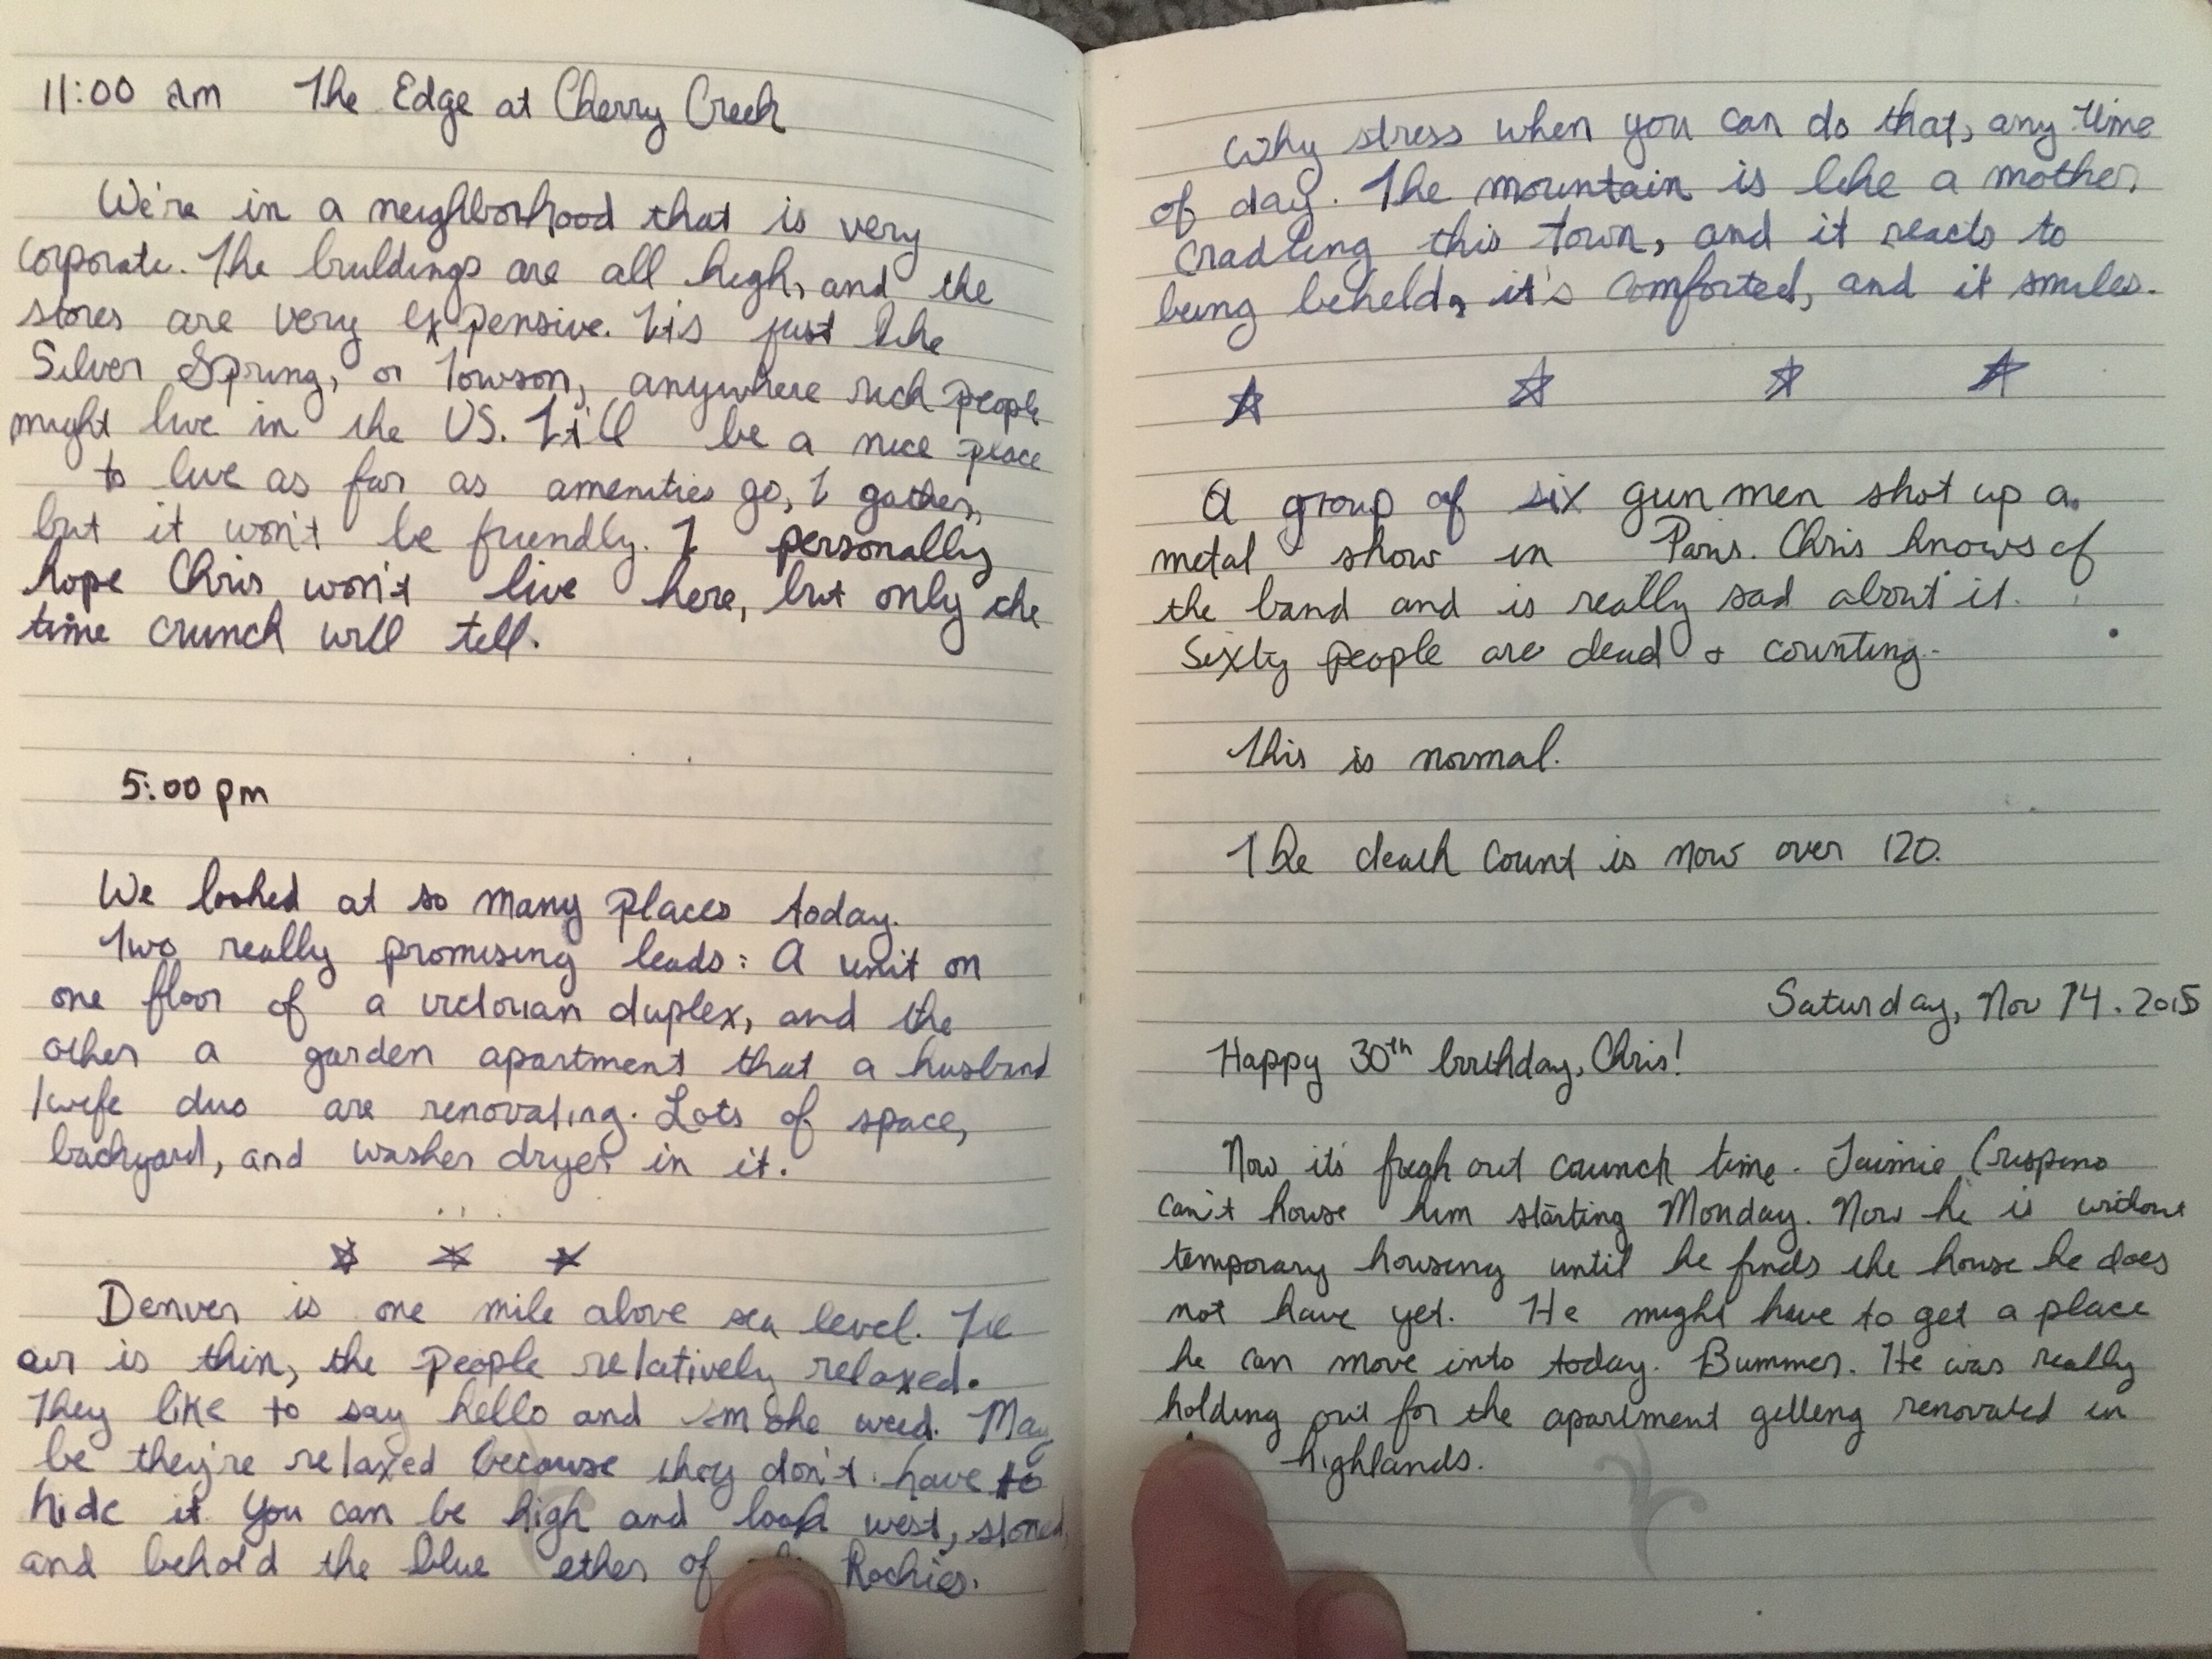 11:00 am The Edge at Cherry Creek
We're in a neighborhood that is very
corporate. The buildings are all high, and the
stores are very expensive. It's just like
Silver Spring, or Towson, anywhere rich people
might live in the US. It'll be a nice place
to live as far as amenities go, I gather,
but it won't be friendly. I personally
hope Chris won't live here, but only the
time crunch will tell.
5:00 pm
We looked at so many places today.
Two really promising leads: A unit on
one floor of a victorian duplex, and the
other a garden apartment that a husband
/wife duo are renovating. Lots of space,
backyard, and washer dryer in it.
Denver is one mile above sea level. The
air is thin, the people relatively relaxed.
They like to say hello and smoke weed. May
be they're relaxed because they don't have to
hide it. You can be high and look west, stoned,
and behold the blue ether of Rockies.
Why stress when you can do that, any time
of day. The mountain is like a mother
cradling this town, and it reacts to
being beheld, it's comforted, and it smiles.
A group of six gun men shot up a
metal show in Paris. Chris knows of
the band and is really sad about it.
Sixty people are dead & counting.
This is normal.
The death count is now over 120.
Saturday, Nov 14. 2015
Happy 30th birthday, Chris!
Now it's freak out crunch time. Jaimie Crispino
can't house him starting Monday. Now he is without
temporary housing until he finds the house he does
not have yet. He might have to get a place
he can move into today. Bummer. He was really
holding out for the apartment getting renovated in
highlands.